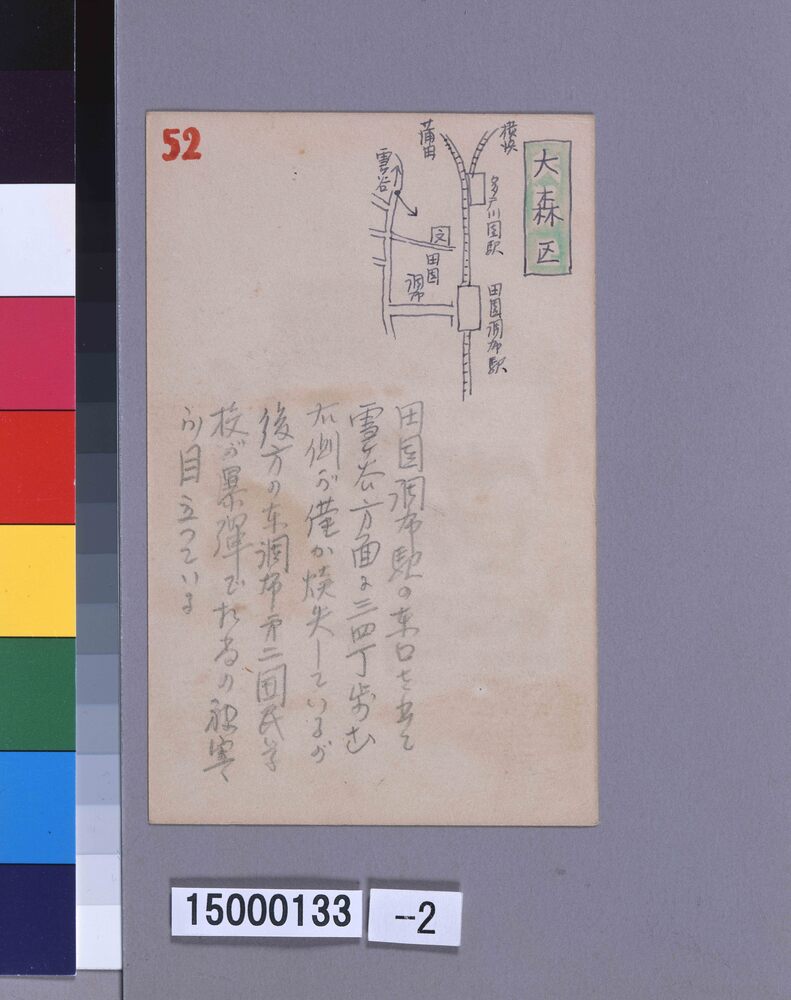 52
大森区
横浜
蒲田
多戸川園駅
田園調布駅
雪谷
文
田園
調布
田園調布駅の東口を出て
雪ヶ谷方面に三四丁歩む
右側が僅か焼失しているが
後方の東調布第二国民学
校が爆弾で
の被害
が目立つている
15000133
-2